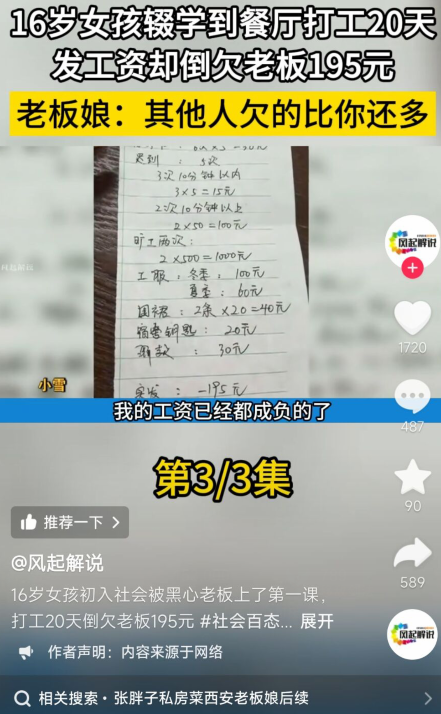 16岁女孩辍学到餐厅打工20天
发工资却倒欠老板195元
老板娘：其他人欠的比你还多
迟到：5次
3次10分钟以内
3×5=15元
2次10分钟以上
2×50=100元
旷工两次：
2×500=1000元
工服：冬季：100元
夏季：60元
围裙：2条×20=40元
宿舍钥匙：20元
罚款：30元
实发：-195元
风起解说
小雪
我的工资已经都成负的了
第3/3集
风起解说
1720
487
90
589
推荐一下 >
@风起解说
16岁女孩初入社会被黑心老板上了第一课，
打工20天倒欠老板195元 #社会百态... 展开
作者声明：内容来源于网络
风起解说
相关搜索·张胖子私房菜西安老板娘后续